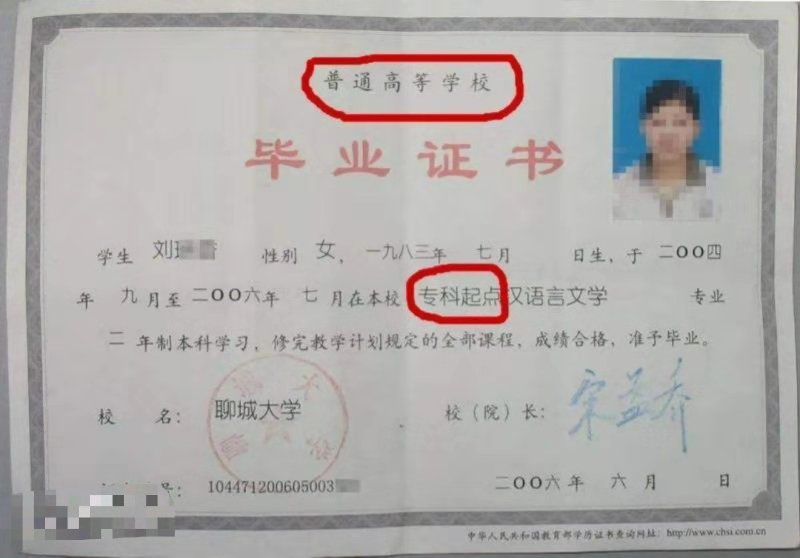 普通高等学校
毕业证书
学生 刘 性别 女，一九八三年 七月 日生，于二〇〇四
年 九月至二〇〇六年 七月在本校 专科起点汉语言文学 专业
二 年制本科学习，修完教学计划规定的全部课程，成绩合格，准予毕业。
校 名：聊城大学 校（院）长：宋益乔
号：104471200605003 二〇〇六年 六月 日
中华人民共和国教育部学历证书查询网址：http://www.chsi.com.cn